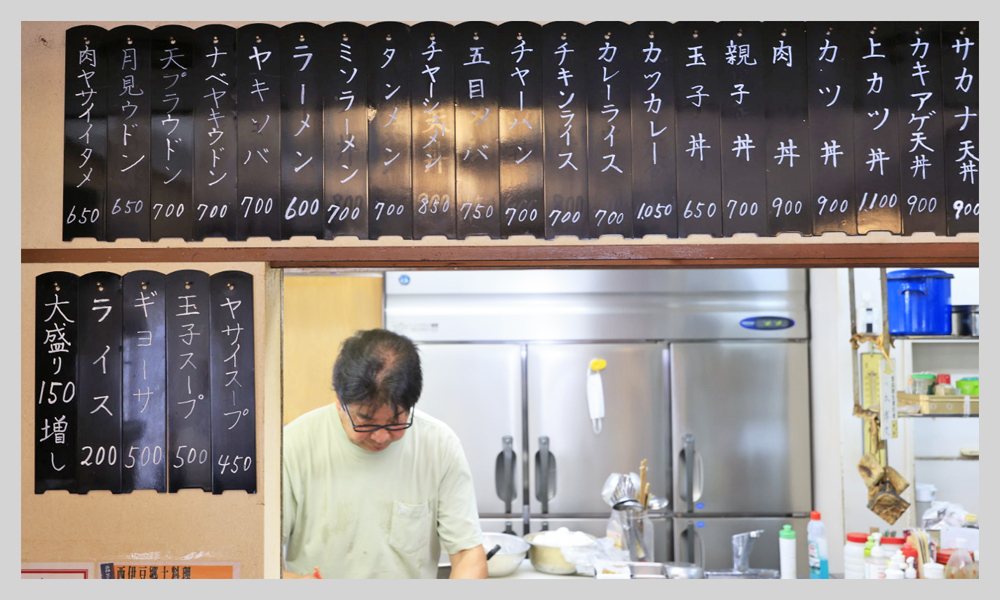 サカナ天丼 900
カキアゲ天丼 900
上カツ丼 1100
カツ丼 900
肉丼 900
親子丼 700
玉子丼 650
カツカレー 1050
カレーライス 700
チキンライス 700
チャーハン 700
五目ソバ 750
チャーシューメン 850
タンメン 700
ミソラーメン 700
ラーメン 600
ヤキソバ 700
ナベヤキウドン 700
天プラウドン 700
月見ウドン 650
肉ヤサイイタメ 650
ヤサイスープ 450
玉子スープ 500
ギョーザ 500
ライス 200
大盛り150増し
西伊豆郷土料理